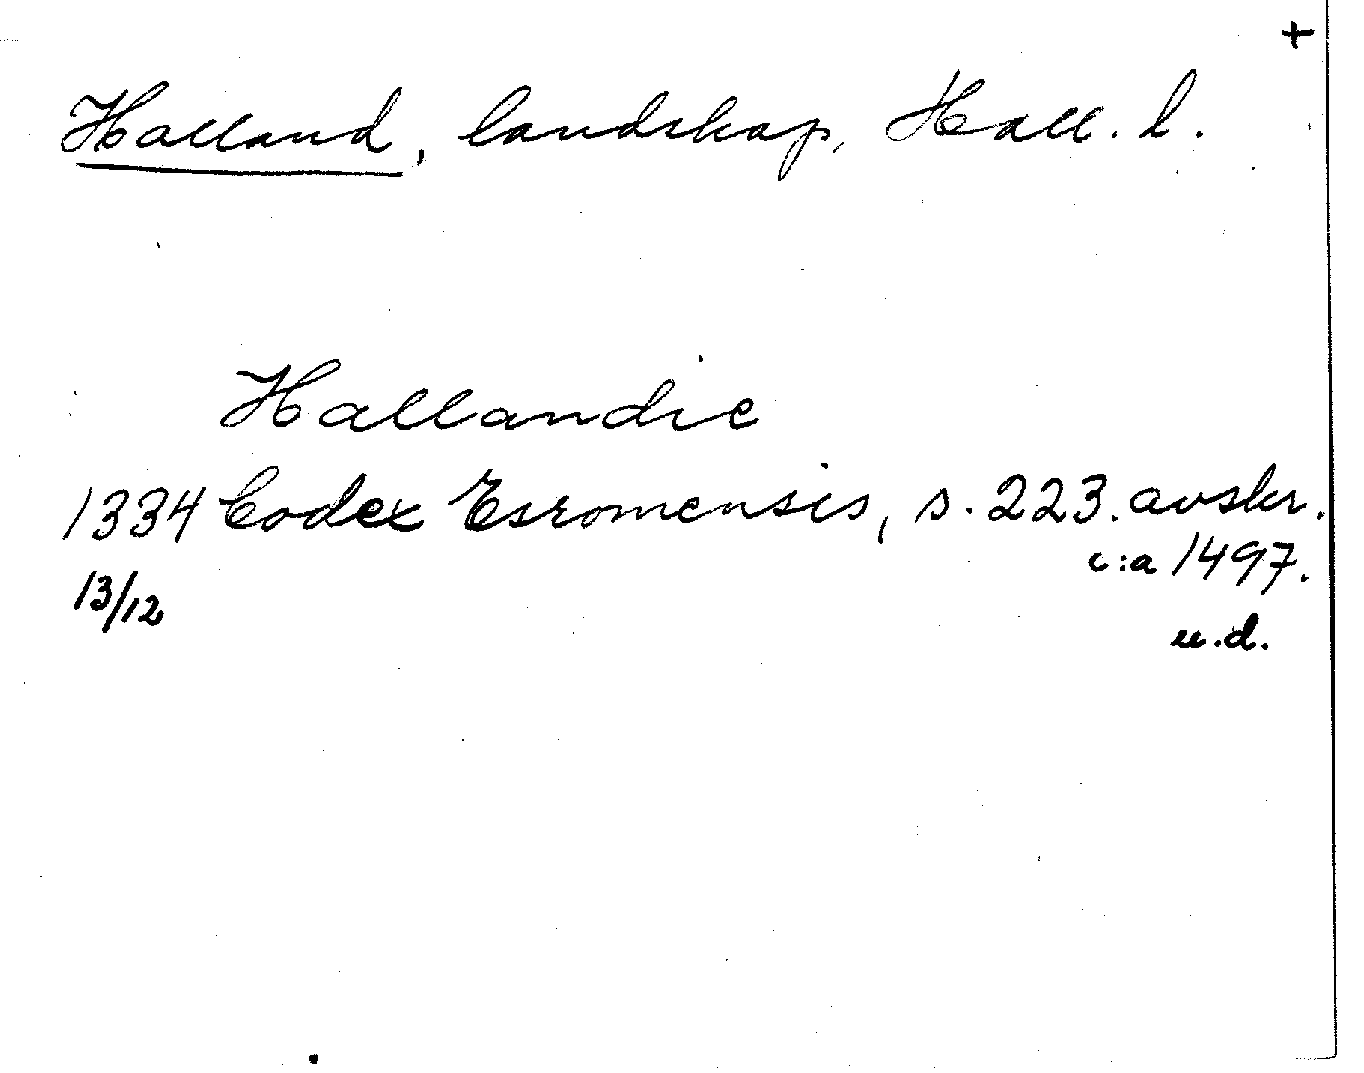 +
Halland, landskap, Hall. l.
Hallandie
1334 Codex Esromensis, s. 223. avskr.
13/12 c:a 1497.
u.d.